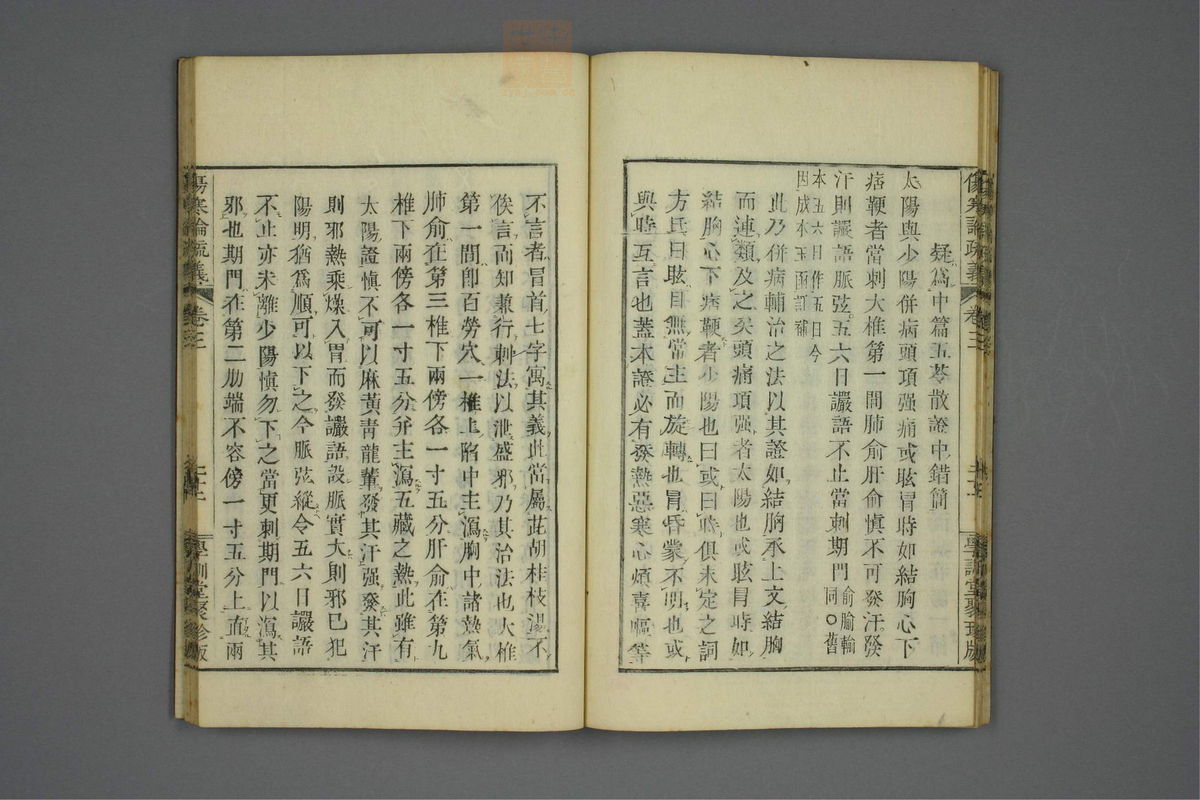 疑爲中篇五苓散證中錯簡
太陽與少陽併病頭項强痛或眩冒時如結胸心下
痞鞕者當刺大椎第一間肺俞肝俞愼不可發汗發
汗則讝語脈弦五六日讝語不止當刺期門俞腧輸同〇舊
本五六日作五日今
因成本玉函訂補
此乃併病輔治之法以其證如結胸承上文結胸
而連類及之矣頭痛項强者太陽也或眩冒時如
結胸心下痞鞕者少陽也曰或曰時俱未定之詞
方氏曰眩目無常主而旋轉也冒昏蒙不明也或
與時互言也蓋本證必有發熱惡寒心煩喜嘔等
不言者冒首七字寓其義此當屬茈胡桂枝湯不
俟言而知兼行刺法以泄盛邪乃其治法也大椎
第一間卽百勞穴一椎上陷中主瀉胸中諸熱氣
肺俞在第三椎下兩傍各一寸五分肝俞在第九
椎下兩傍各一寸五分并主瀉五藏之熱此雖有
太陽證愼不可以麻黃靑龍輩發其汗强發其汗
則邪熱乘燥入胃而發讝語設脈實大則邪已犯
陽明猶爲順可以下之今脈弦縱令五六日讝語
不止亦未離少陽愼勿下之當更刺期門以瀉其
邪也期門在第二肋端不容傍一寸五分上直兩
傷寒論疏義 卷三 學訓堂聚珍版